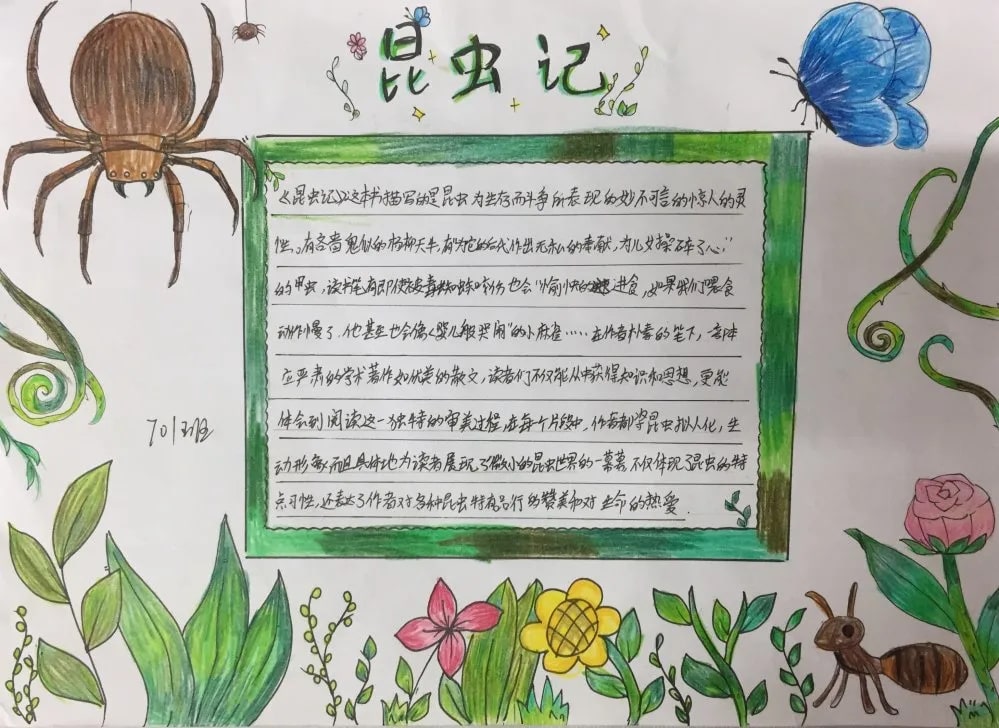 昆虫记
《昆虫记》这本书描写的是昆虫为生存而斗争所表现的妙不可言的惊人的灵
性。有吝啬鬼似的杨柳天牛，有为它的后代作出无私的奉献，为儿女操碎了心"
的甲虫，读书笔有即使被毒蜘蛛咬伤也会"愉快的进食，如果我们喂食
动作慢了，他甚至也会像《婴儿般哭闹"的小麻雀……在作者朴素的笔下，一部本
应严肃的学术著作如优美的散文，读者们不仅能从中获得知识和思想，更能
体会到阅读这一独特的审美过程，在每个片段中，作者都将昆虫拟人化，生
动形象而且具体地为读者展现了微小的昆虫世界的一幕幕不仅体现了昆虫的特
点习性，还表达了作者对各种昆虫特有品行的赞美和对生命的热爱.
701班